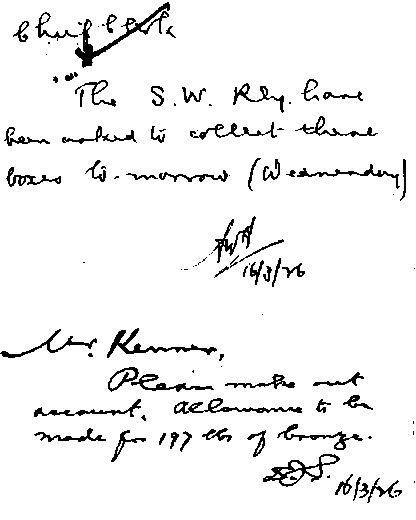 Chief Clerk
The S.W. Rly. have
been asked to collect these
boxes to-morrow (Wednesday)
16/3/26
Mr. Kenner,
Please make out
account. Allowance to be
made for 197 lbs of bronze.
16/3/26